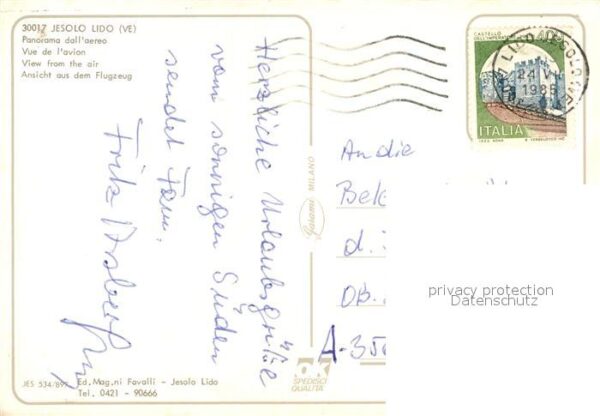 30017 JESOLO LIDO (VE)
Panorama dall'aereo
Vue de l'avion
View from the air
Ansicht aus dem Flugzeug
Herzliche Urlaubsgrüße
vom sonnigen Süden
sendet Fam.
Fritz
JES 534/899
Ed. Mag.ni Favalli - Jesolo Lido
Tel. 0421 - 90666
MILANO
OK
SPEDISCI
QUALITA'
CASTELLO
DELL'IMPERATORE
ITALIA
LIDO
24
1985
An die
d.
OB.
A-35
privacy protection
Datenschutz